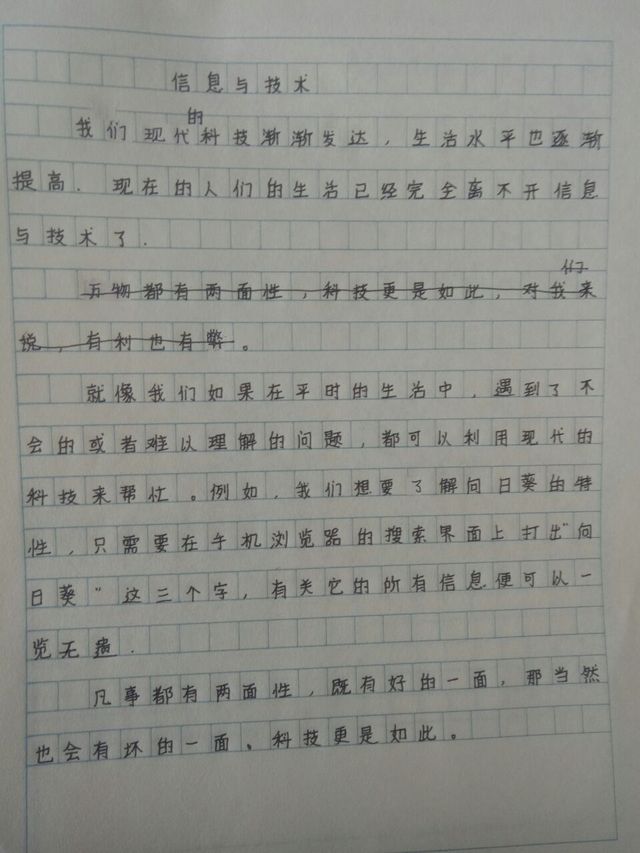 信息与技术
我们现代的科技渐渐发达，生活水平也逐渐
提高．现在的人们的生活已经完全离不开信息
与技术了．
万物都有两面性，科技更是如此，对我们来
说，有利也有弊。
就像我们如果在平时的生活中，遇到了不
会的或者难以理解的问题，都可以利用现代的
科技来帮忙。例如，我们想要了解向日葵的特
性，只需要在手机浏览器的搜索界面上打出“向
日葵”这三个字，有关它的所有信息便可以一
览无遗．
凡事都有两面性，既有好的一面，那当然
也会有坏的一面。科技更是如此。